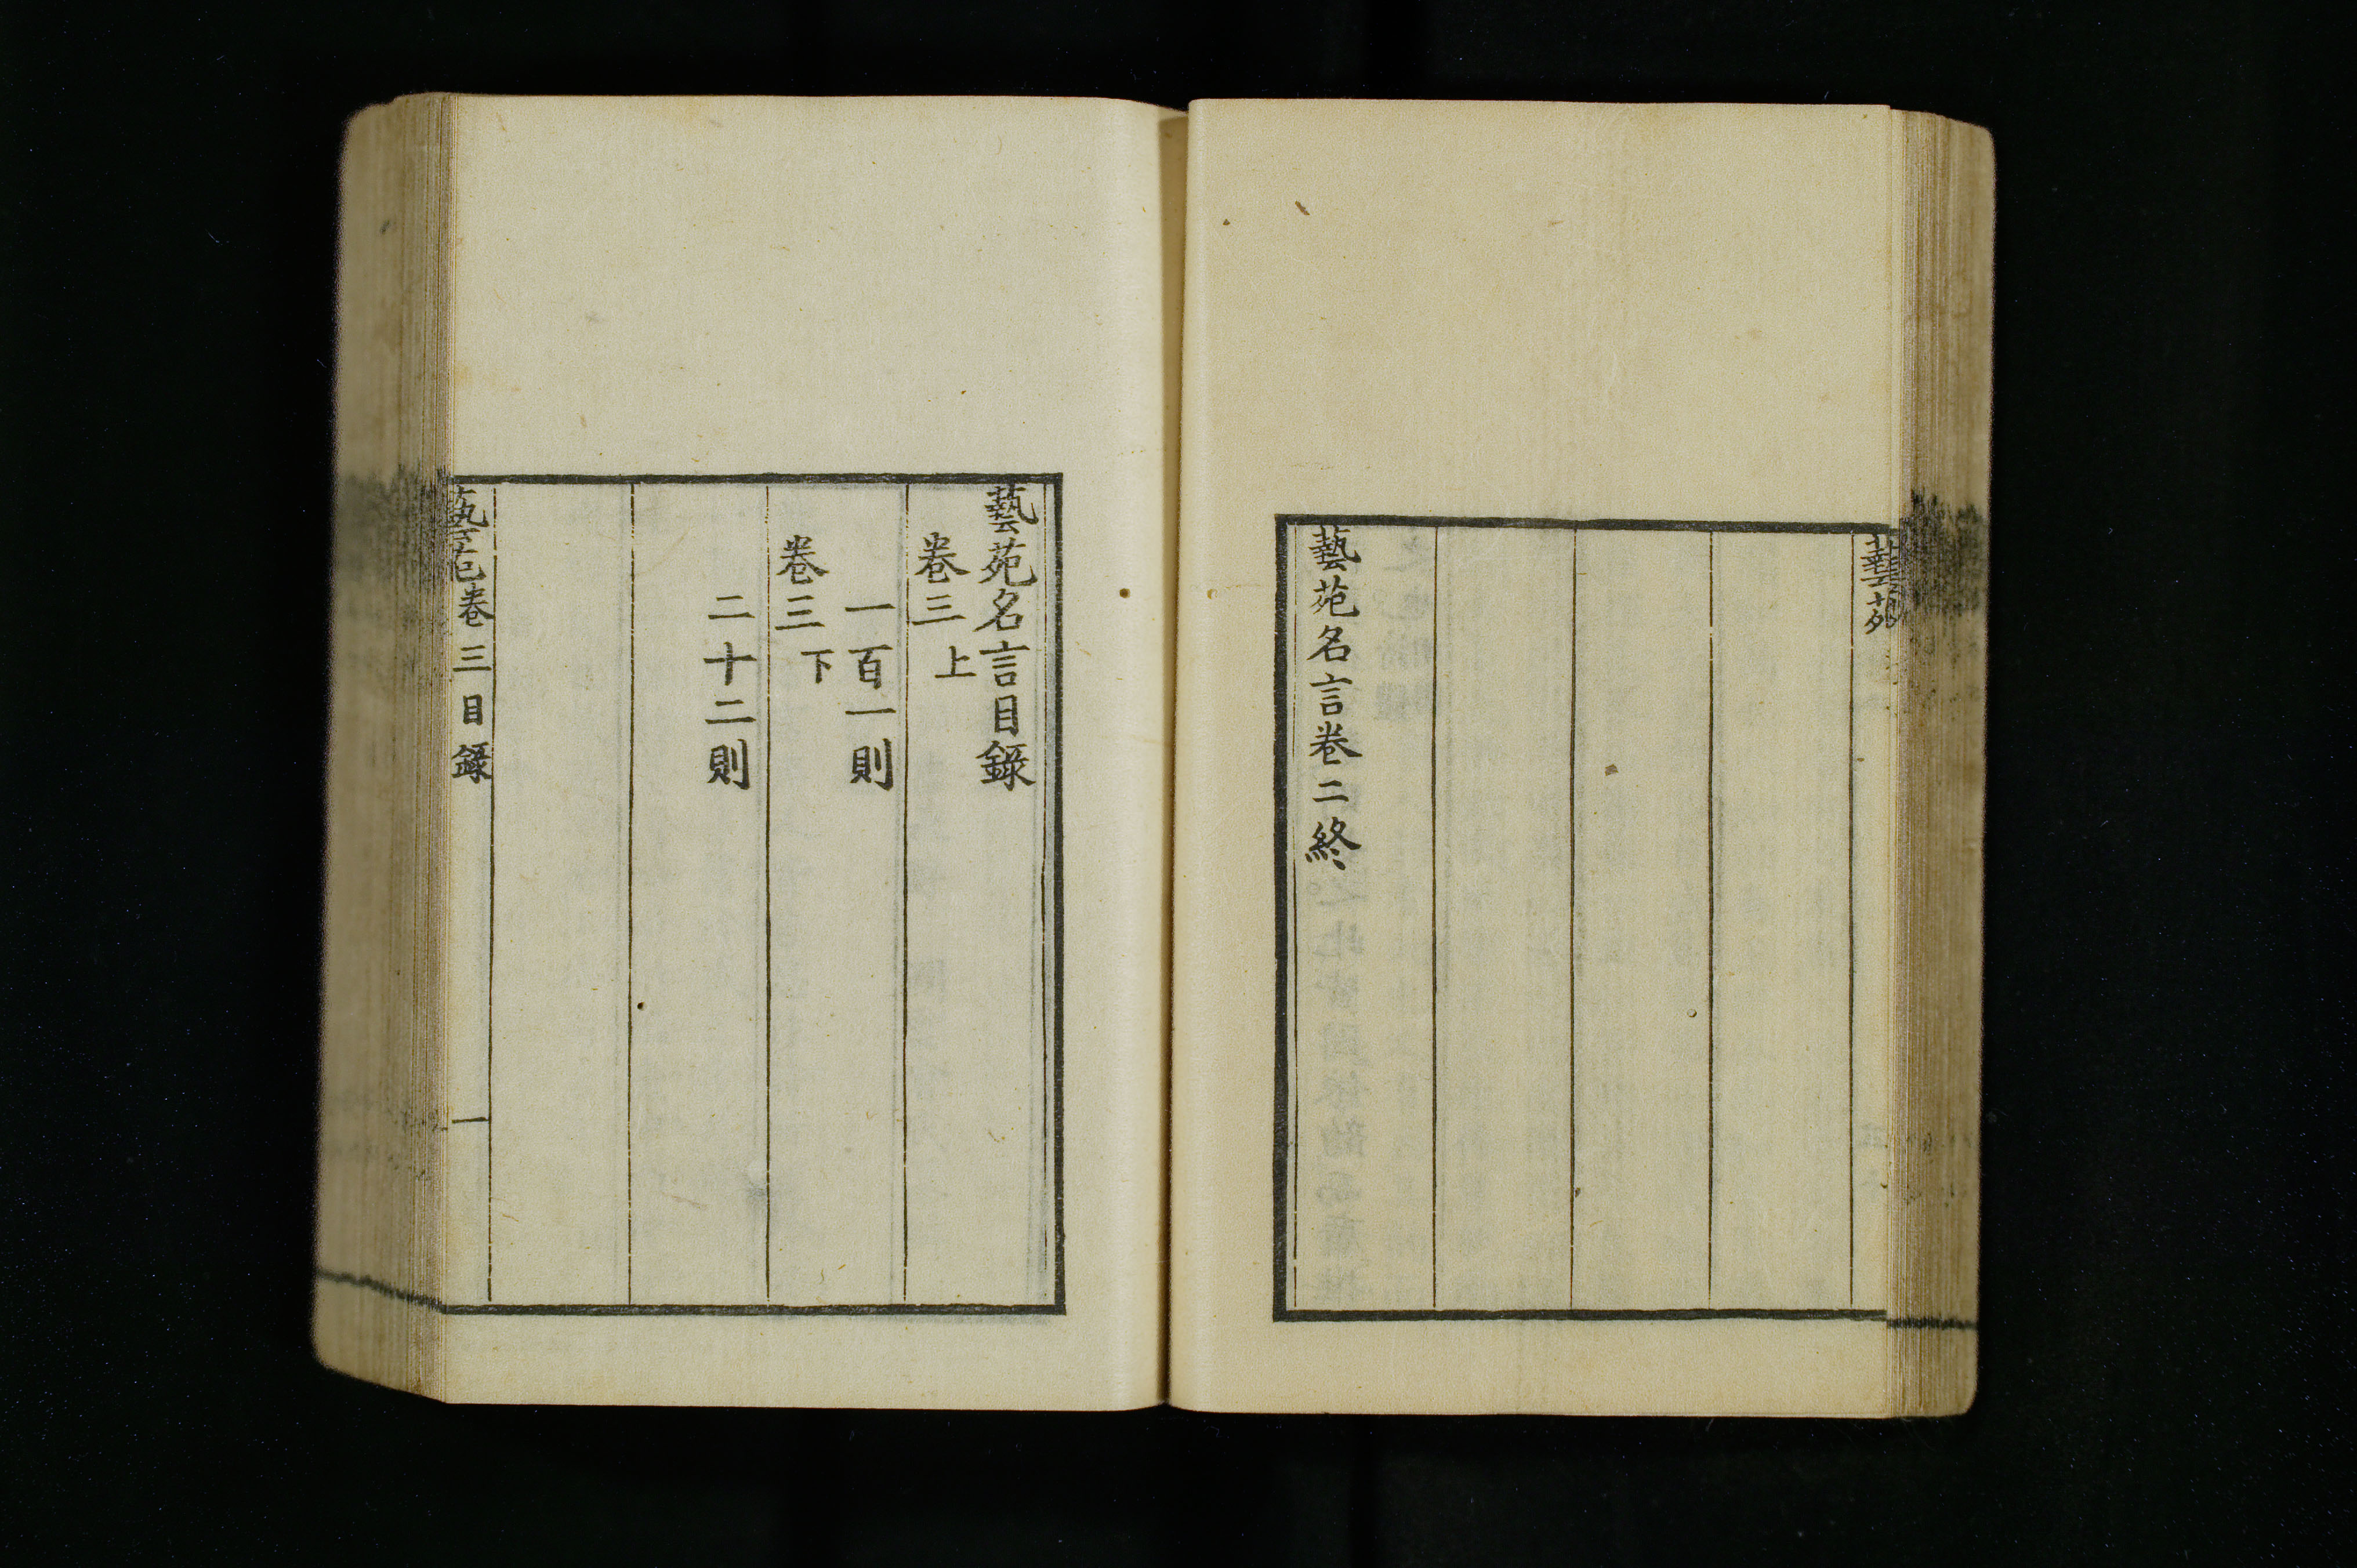 藝苑
藝苑名言卷二終
藝苑名言目錄
卷三上
一百一則
卷三下
二十二則
藝苑卷三目錄
一